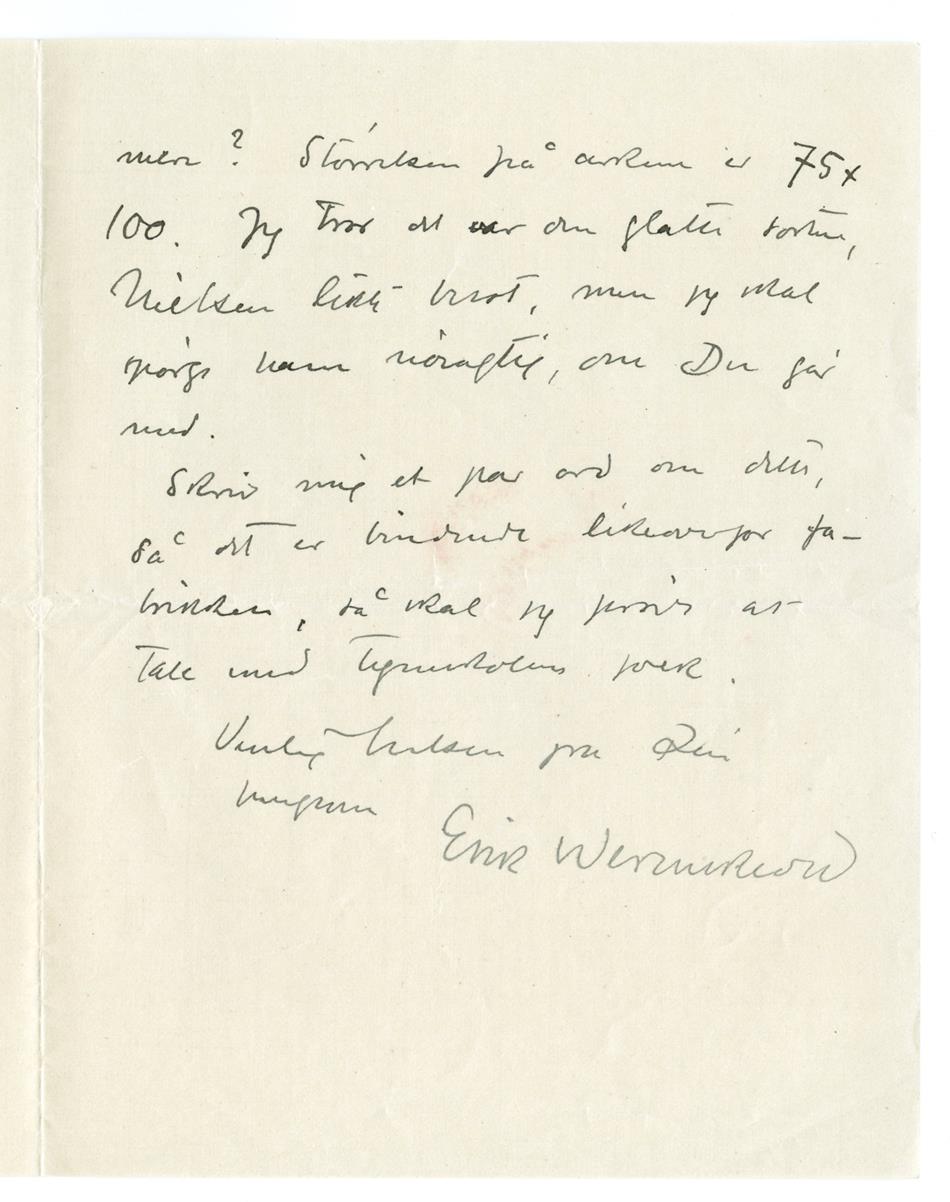 mere? Störrelsen på arkene er 75x
100. Jeg tror det var den glatte sorten,
Nielsen likte best, men jeg skal
spörge ham nöiagtig, om Du går
med.
Skriv mig et par ord om dette,
så det er bindende likeoverfor fa-
brikken, så skal jeg pröve at
tale med Tegneskolens folk.
Venlig hilsen fra Din
hengivne
Erik Werenskiold